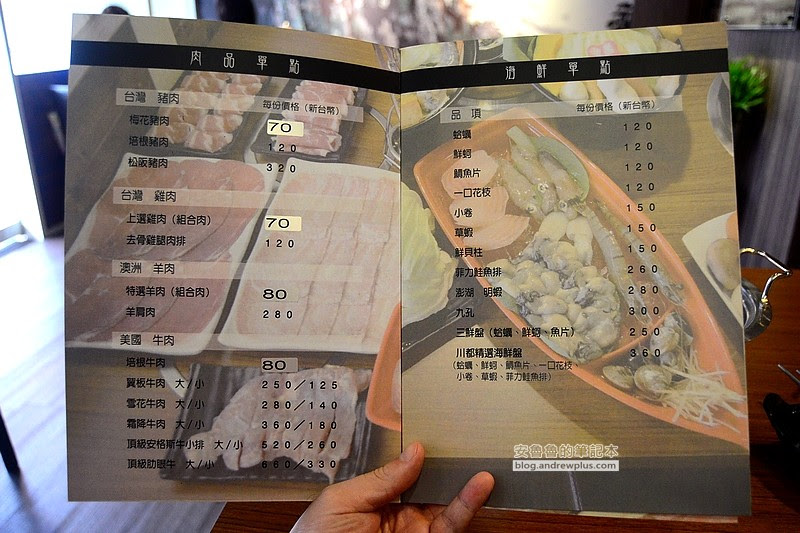 肉品單點
台灣 豬肉 每份價格（新台幣）
梅花豬肉 70
培根豬肉 120
松阪豬肉 320
台灣 雞肉
上選雞肉（組合肉） 70
去骨雞腿肉排 120
澳洲 羊肉
特選羊肉（組合肉） 80
羊肩肉 280
美國 牛肉
培根牛肉 80
翼板牛肉 大／小 250／125
雪花牛肉 大／小 280／140
霜降牛肉 大／小 360／180
頂級安格斯牛小排 大／小 520／260
頂級肋眼牛 大／小 660／330
海鮮單點
品項 每份價格（新台幣）
蛤蠣 120
鮮蚵 120
鯛魚片 120
一口花枝 120
小卷 150
草蝦 150
鮮貝柱 150
菲力鮭魚排 260
澎湖 明蝦 280
九孔 300
三鮮盤（蛤蠣、鮮蚵、魚片） 250
川都精選海鮮盤 360
（蛤蠣、鮮蚵、鯛魚片、一口花枝、
小卷、草蝦、菲力鮭魚排）
安魯魯的筆記本
blog.andrewplus.com